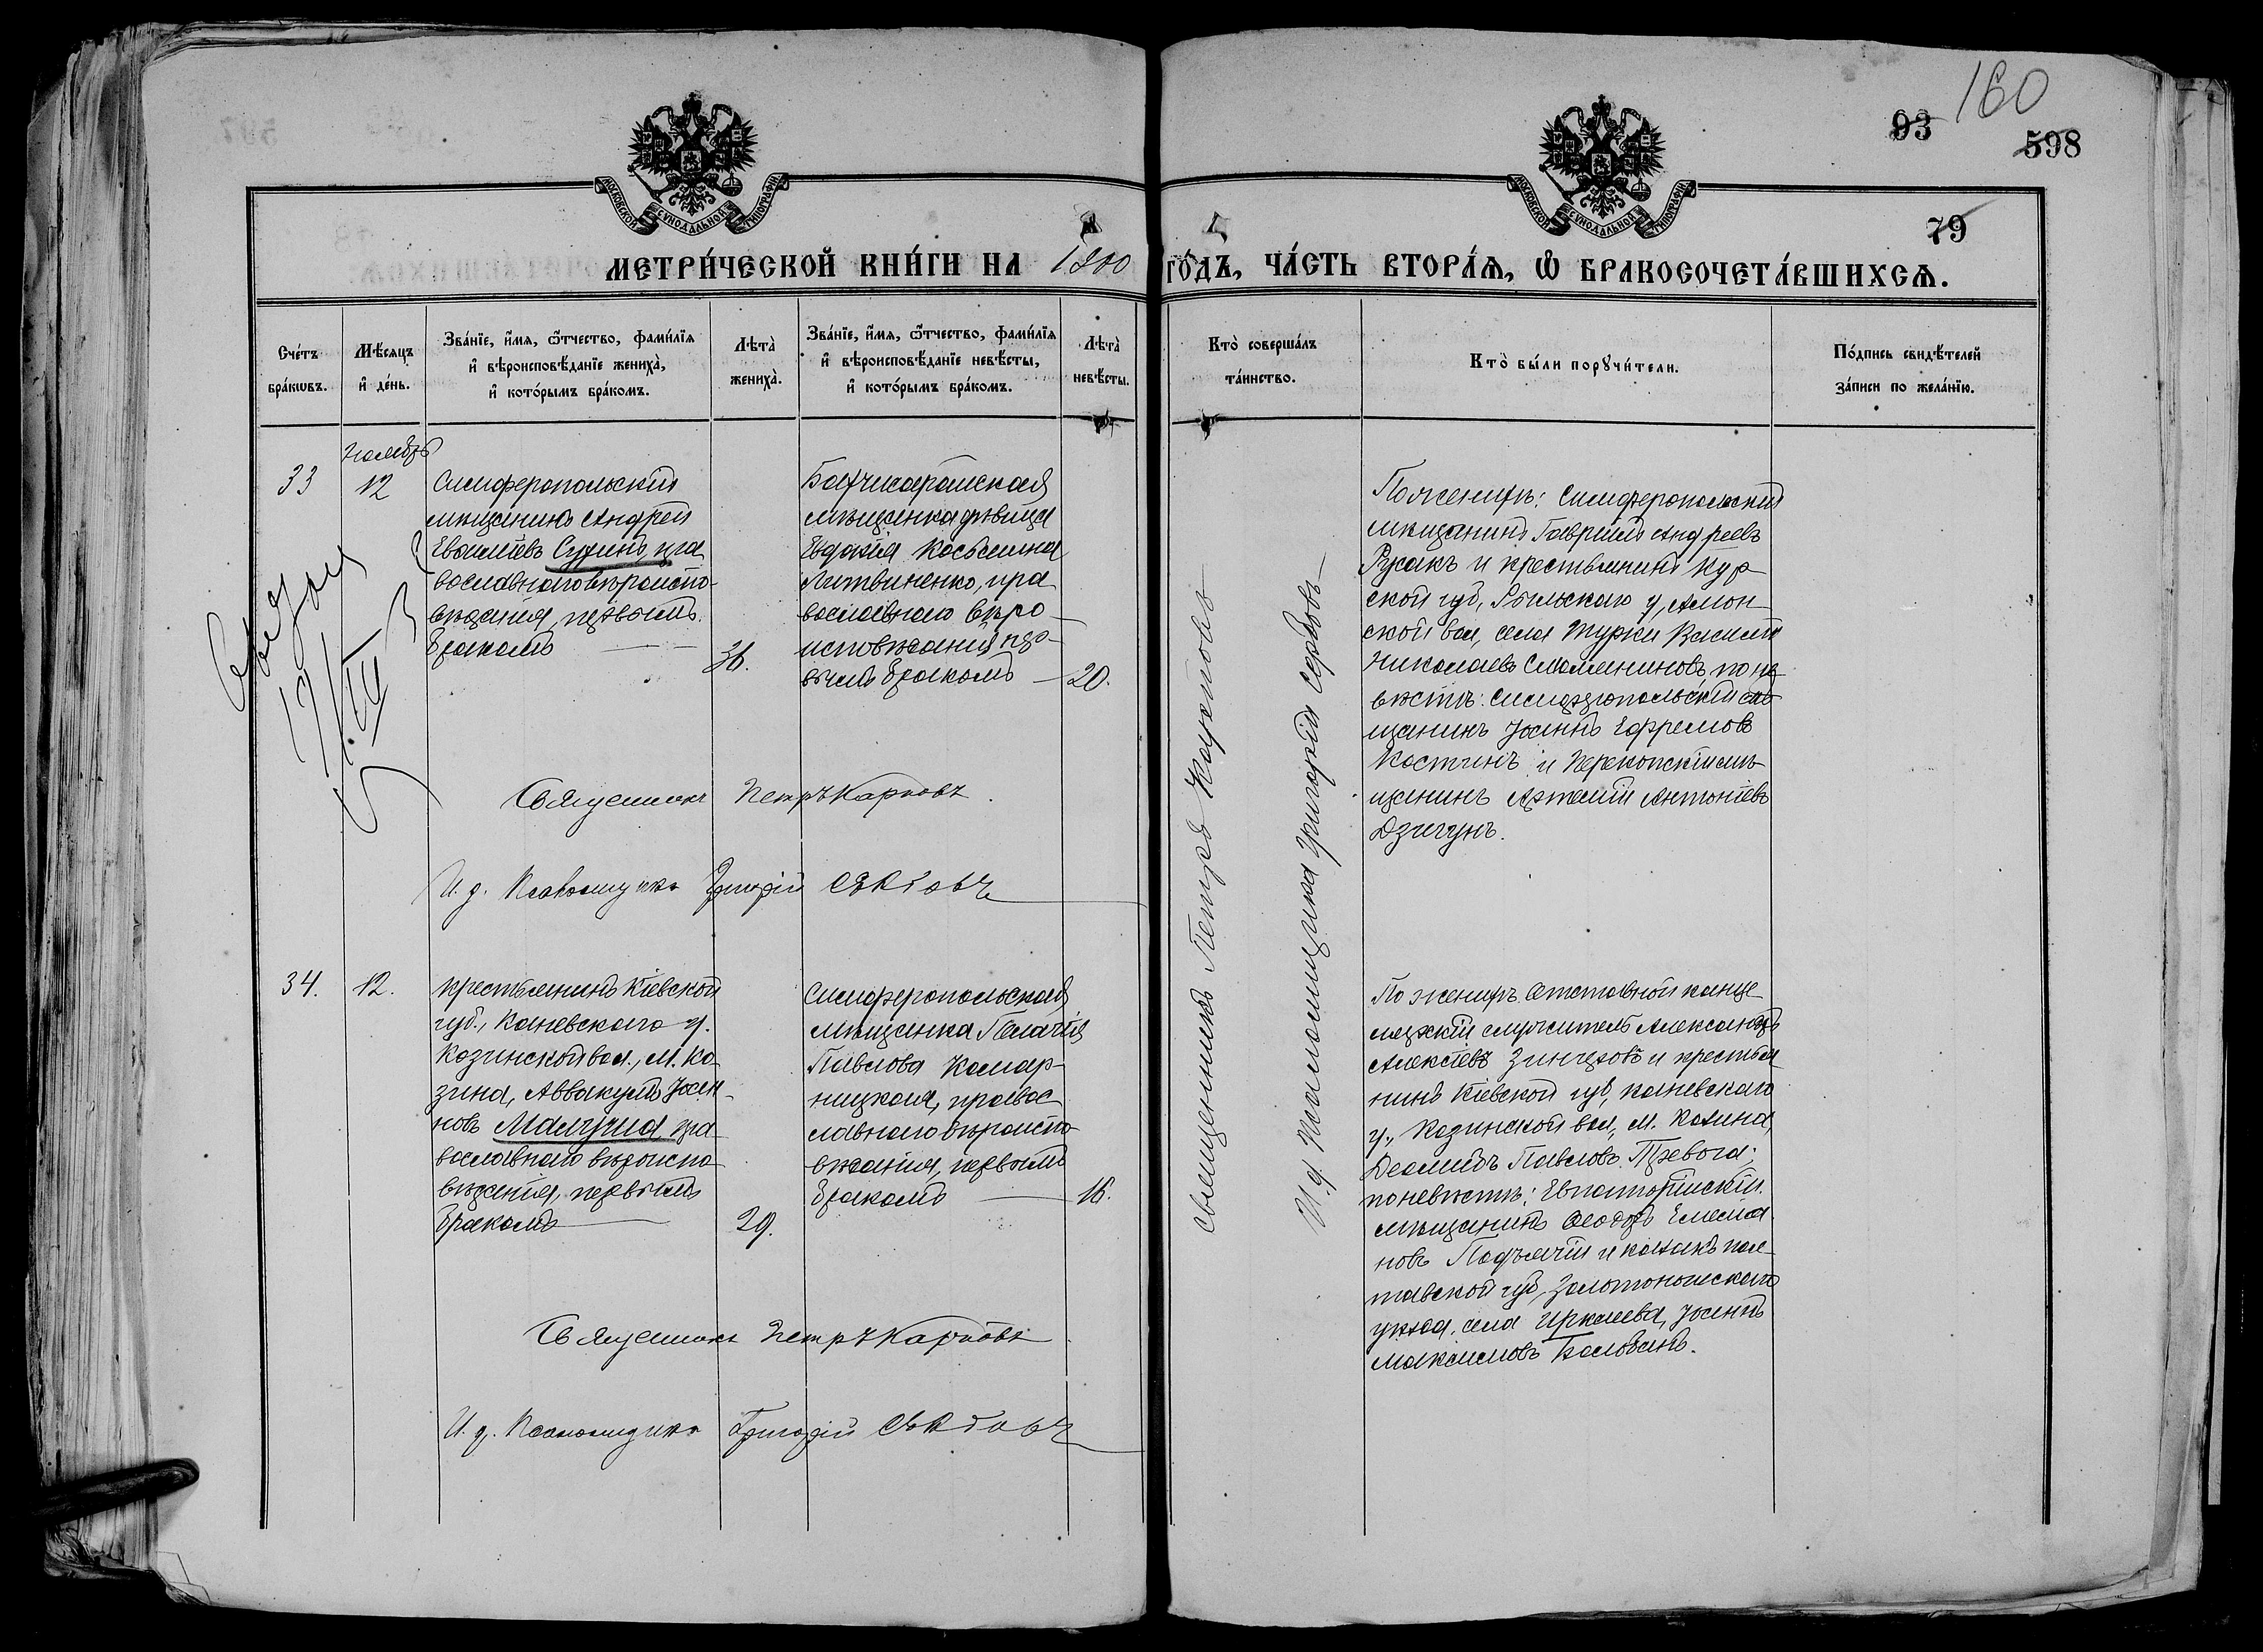 160
93
598
79
МОСКОВСКОЙ СУНОДАЛЬНОЙ ТИПОГРАФІИ
МОСКОВСКОЙ СУНОДАЛЬНОЙ ТИПОГРАФІИ
МЕТРИ́ЧЕСКОЙ КНИ́ГИ НА 1900 ГО́ДЪ, ЧА́СТЬ ВТОРА́Ѧ, Ѽ БРАКОСОЧЕТА́ВШИХСѦ.
Сче́тъ
бра́кѡвъ.
Мѣ́сяцъ
и҆ де́нь.
Зва́нїе, и҆́мя, ѻ҆́тчество, фами́лїя
и҆ вѣроисповѣ́данїе жениха̀,
и҆ кото́рымъ бра́комъ.
Лѣта̀
жениха̀.
Зва́нїе, и҆́мя, ѻ҆́тчество, фами́лїя
и҆ вѣроисповѣ́данїе невѣ́сты,
и҆ кото́рымъ бра́комъ.
Лѣта̀
невѣ́сты.
Кто̀ соверша́лъ
та́инство.
Кто̀ бы́ли порꙋчи́тели.
По́дпись свидѣ́телей
за́писи по жела́нїю.
Ноябрь
33
12
Симферопольскій
мѣщанинъ Андрей
Сухинъ, пра
вославнаго вѣроиспо-
вѣданія, первымъ
бракомъ
36.
Бахчисарайская
мѣщанка дѣвица
Евдокія Косьмина
Литвиненко, пра
вославнаго вѣро-
исповѣданія, пер-
вымъ бракомъ
20.
Священникъ Петръ Карповъ
И. д. Псаломщика Григорій Сербовъ
По женихѣ: Симферопольскій
мѣщанинъ Гавріилъ Андреевъ
Русакъ и крестьянинъ Кур
ской губ., Рыльскаго у., Амон-
ской вол., села Турки Василій
Николаевъ по не
вѣстѣ: Симферопольскій мѣ
щанинъ Іоаннъ Ефремовъ
Костинъ и Перекопскій мѣ-
щанинъ Артемій Антоніевъ
Дзигунъ.
Священникъ Петръ Карповъ
И. д. Псаломщика Григорій Сербовъ
34.
12.
Крестьянинъ Кіевской
губ., Каневскаго у.
Козинской вол., м. Ко-
зина, Аввакумъ Іоан-
новъ пра
вославнаго вѣроиспо
вѣданія, первымъ
бракомъ
29.
Симферопольская
мѣщанка Пелагія
Павлова Комар-
ницкая, правос
лавнаго вѣроиспо-
вѣданія, первымъ
бракомъ
16.
По женихѣ Отставной канце-
лярскій служитель Александръ
Алексѣевъ и крестья
нинъ Кіевской губ, Каневскаго
у., Козинской вол, м. Козина,
Діомидъ Павловъ Тревога;
по невѣстѣ: Евпаторійскій
мѣщанинъ Ѳеодоръ Емелиа
новъ Подъячій и козакъ Пол-
тавской губ, Золотоношскаго
уѣзда, села Иркліева, Іоаннъ
Максимовъ
Священникъ Петръ Карповъ
И. д. Псаломщика Григорій Сербовъ